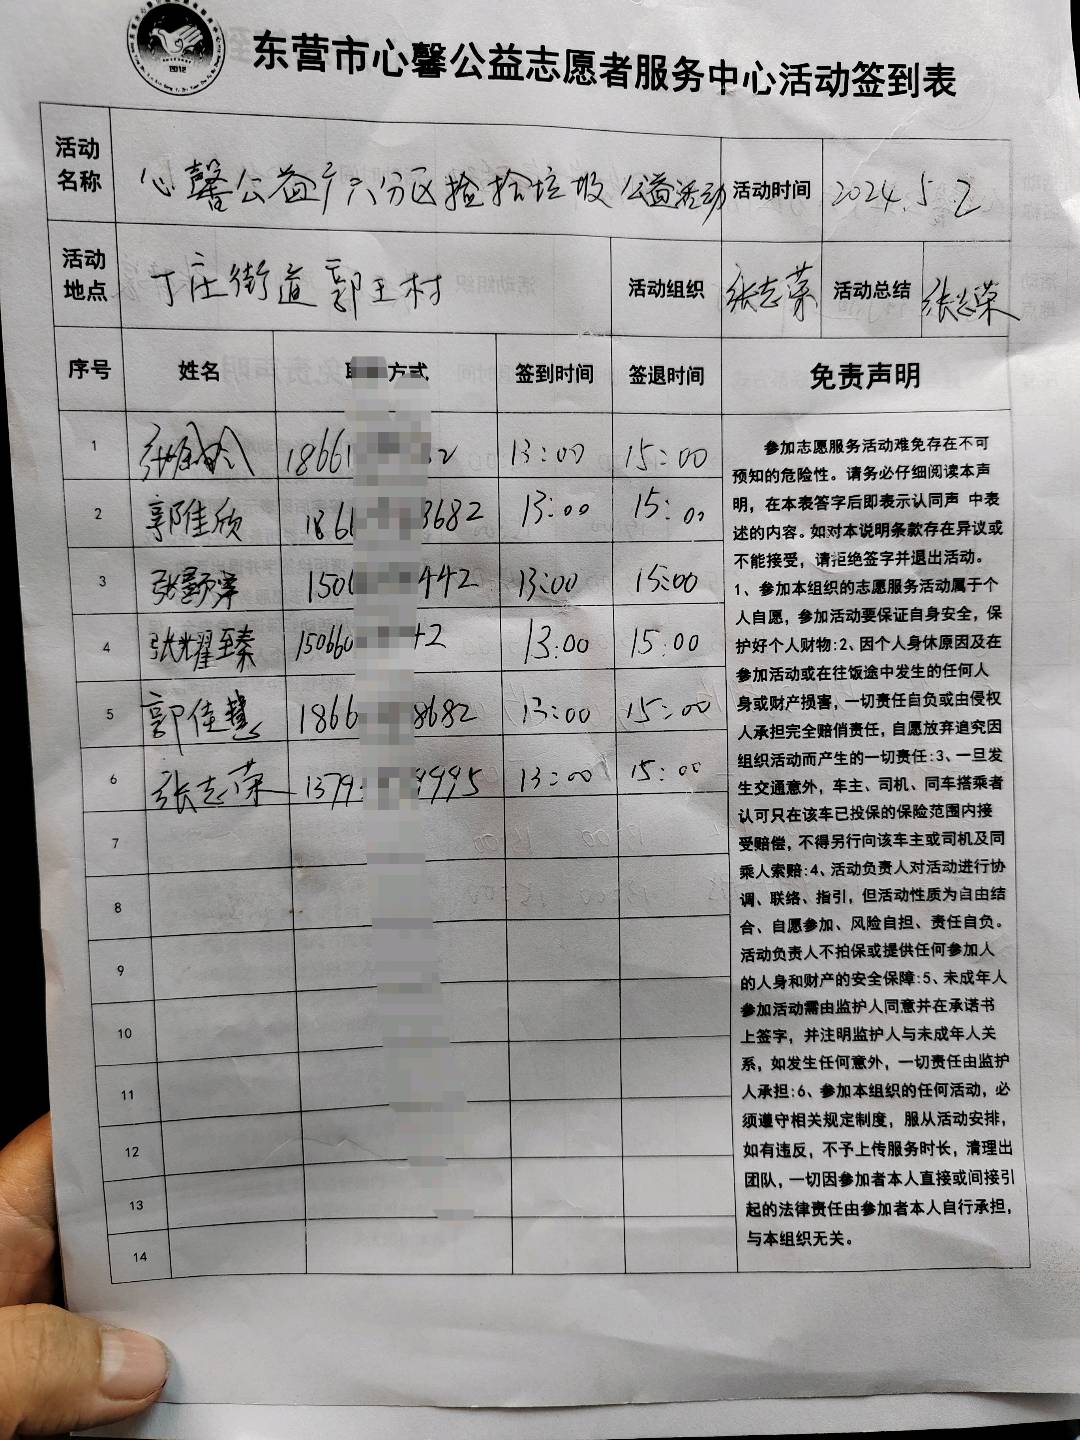 2012
东营市心馨公益志愿者服务中心活动签到表
活动名称 心馨公益广六分区捡拾垃圾公益活动 活动时间 2024.5.2
活动地点 丁庄街道郭王村 活动组织 张志荣 活动总结 张志荣
序号 姓名 方式 签到时间 签退时间 免责声明
1 1866 2 13:00 15:00
2 郭佳欣 186 3682 13:00 15:00
3 张颢霖 150 442 13:00 15:00
4 张耀臻 15066 42 13:00 15:00
5 郭佳慧 1866 8682 13:00 15:00
6 张志荣 1379 9995 13:00 15:00
7
8
9
10
11
12
13
14
参加志愿服务活动难免存在不可
预知的危险性。请务必仔细阅读本声
明，在本表签字后即表示认同声 中表
述的内容。如对本说明条款存在异议或
不能接受，请拒绝签字并退出活动。
1、参加本组织的志愿服务活动属于个
人自愿，参加活动要保证自身安全，保
护好个人财物:2、因个人身休原因及在
参加活动或在往饭途中发生的任何人
身或财产损害，一切责任自负或由侵权
人承担完全赔俏责任，自愿放弃追究因
组织活动而产生的一切责任:3、一旦发
生交通意外，车主、司机、同车搭乘者
认可只在该车已投保的保险范围内接
受赔偿，不得另行向该车主或司机及同
乘人索赔:4、活动负责人对活动进行协
调、联络、指引，但活动性质为自由结
合、自愿参加、风险自担、责任自负。
活动负责人不拍保或提供任何参加人
的人身和财产的安全保障:5、未成年人
参加活动需由监护人同意并在承诺书
上签字，并注明监护人与未成年人关
系，如发生任何意外，一切责任由监护
人承担:6、参加本组织的任何活动，必
须遵守相关规定制度，服从活动安排，
如有违反，不予上传服务时长，清理出
团队，一切因参加者本人直接或间接引
起的法律责任由参加者本人自行承担，
与本组织无关。